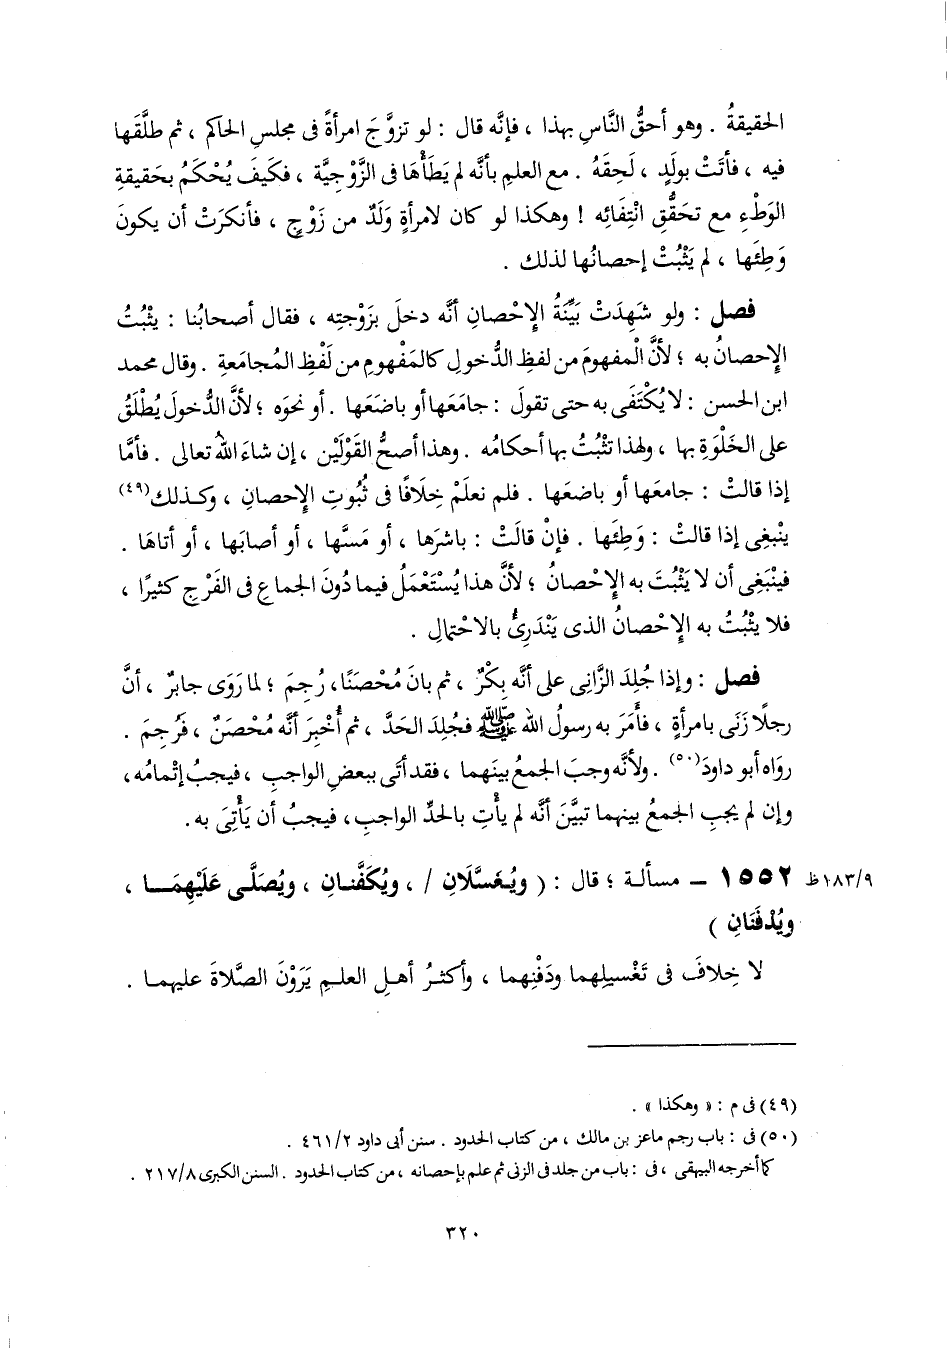 الحقيقةُ . وهو أحقُّ النَّاسِ بهذا ، فإنَّه قال : لو تزوَّجَ امرأةً فى مجلسِ الحاكم ، ثم طلَّقَها
فيه ، فأتَتْ بولَدٍ ، لَحِقَهُ . مع العلمِ بأنَّه لم يَطَأْهَا فى الزَّوْجيَّة ، فكَيفَ يُحْكَمُ بحَقيقةِ
الوَطْءِ مع تحَقُّقِ انْتِفَائِه ! وهكذا لو كان لامرأةٍ وَلَدٌ من زَوْجٍ ، فأنكرَتْ أن يكونَ
وَطِئَها ، لم يَثْبُتْ إحصانُها لذلك .
فصل : ولو شَهِدَتْ بَيِّنَةُ الإِحْصانِ أنَّه دخلَ بزَوْجتِه ، فقال أصحابُنا : يثْبُتُ
الإِحصانُ به ؛ لأنَّ الْمفهومَ من لفظِ الدُّخولِ كالمَفْهومِ من لَفْظِ المُجامَعةِ . وقال محمد
ابن الحسن : لا يُكْتَفَى به حتى تقولَ : جامَعَها أو باضَعَها . أو نحوَه ؛ لأنَّ الدُّخولَ يُطْلَقُ
على الخَلْوَةِ بها ، ولهذا تثْبُتُ بها أحكامُه . وهذا أصحُّ القَوْلَيْن ، إن شاءَ اللهُ تعالى . فأمَّا
إذا قالتْ : جامَعَها أو باضَعَها . فلم نعلَمْ خِلَافًا فى ثُبُوتِ الإِحصانِ ، وكذلك(٤٩)
ينْبغِى إذا قالتْ : وَطِئَها . فإنْ قالَتْ : باشرَها ، أو مَسَّها ، أو أصابَها ، أو أتاهَا .
فينْبَغِى أن لا يَثْبُتَ به الإِحْصانُ ؛ لأنَّ هذا يُسْتَعْمَلُ فيما دُونَ الجماعِ فى الفَرْجِ كثيرًا ،
فلا يثْبُتُ به الإِحْصانُ الذى يَنْدَرِئُ بالاحْتِمالِ .
فصل : وإذا جُلِدَ الزَّانِى على أنَّه بِكْرٌ ، ثم بانَ مُحْصَنًا، رُجِمَ ؛ لما رَوَى جابرٌ ، أنَّ
رجلًا زَنَى بامرأةٍ ، فأَمَرَ به رسولُ الله ﷺ فجُلِدَ الحَدَّ ، ثم أُخْبِرَ أنَّه مُحْصَنٌ ، فَرُجِمَ .
روَاه أبو داودَ(٥٠) . ولأنَّه وجبَ الجمعُ بينَهما ، فقد أتَى ببعضِ الواجبِ ، فيجبُ إتْمامُه،
وإن لم يجبِ الجمعُ بينهما تبيَّنَ أنَّه لم يأْتِ بالحدِّ الواجبِ، فيجبُ أن يَأْتِىَ به.
١٥٥٢ – مسألة ؛ قال : ( ويُغَسَّلَانِ / ، ويُكَفَّنانِ ، ويُصَلَّى عَلَيْهِمَا ، ٩/١٨٣ظ
ويُدْفَنَانِ )
لا خِلافَ فى تَغْسيلِهما ودَفْنِهما ، وأكثرُ أهلِ العلمِ يَرَوْنَ الصَّلاةَ عليهما .
(٤٩) فى م : « وهكذا » .
(٥٠) فى : باب رجم ماعز بن مالك ، من كتاب الحدود . سنن أبى داود ٤٦١/٢ .
كما أخرجه البيهقى ، فى : باب من جلد فى الزنى ثم علم بإحصانه ، من كتاب الحدود . السنن الكبرى ٢١٧/٨ .
٣٢٠